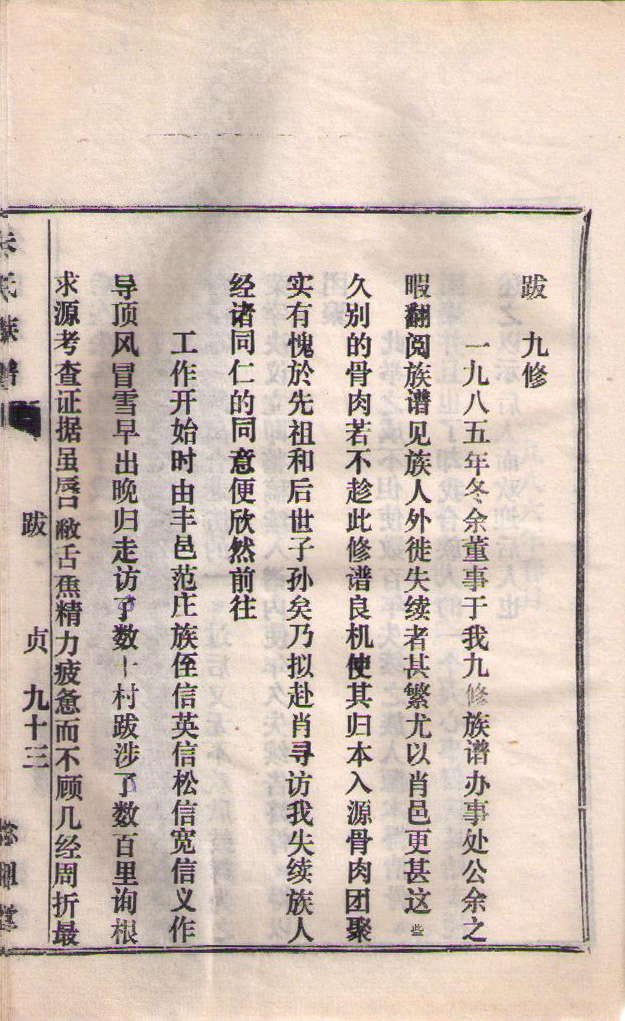 跋 九修
一九八五年冬余董事于我九修族谱办事处公余之
暇翻阅族谱见族人外徙失续者甚繁尤以肖邑更甚这些
久别的骨肉若不趁此修谱良机使其归本入源骨肉团聚
实有愧於先祖和后世子孙矣乃拟赴肖寻访我失续族人
经诸同仁的同意便欣然前往
工作开始时由丰邑范庄族侄信英信松信宽信义作
导顶风冒雪早出晚归走访了数十村跋涉了数百里询根
求源考查证据虽唇敝舌焦精力疲惫而不顾几经周折最
氏族谱
跋
贞 九十三